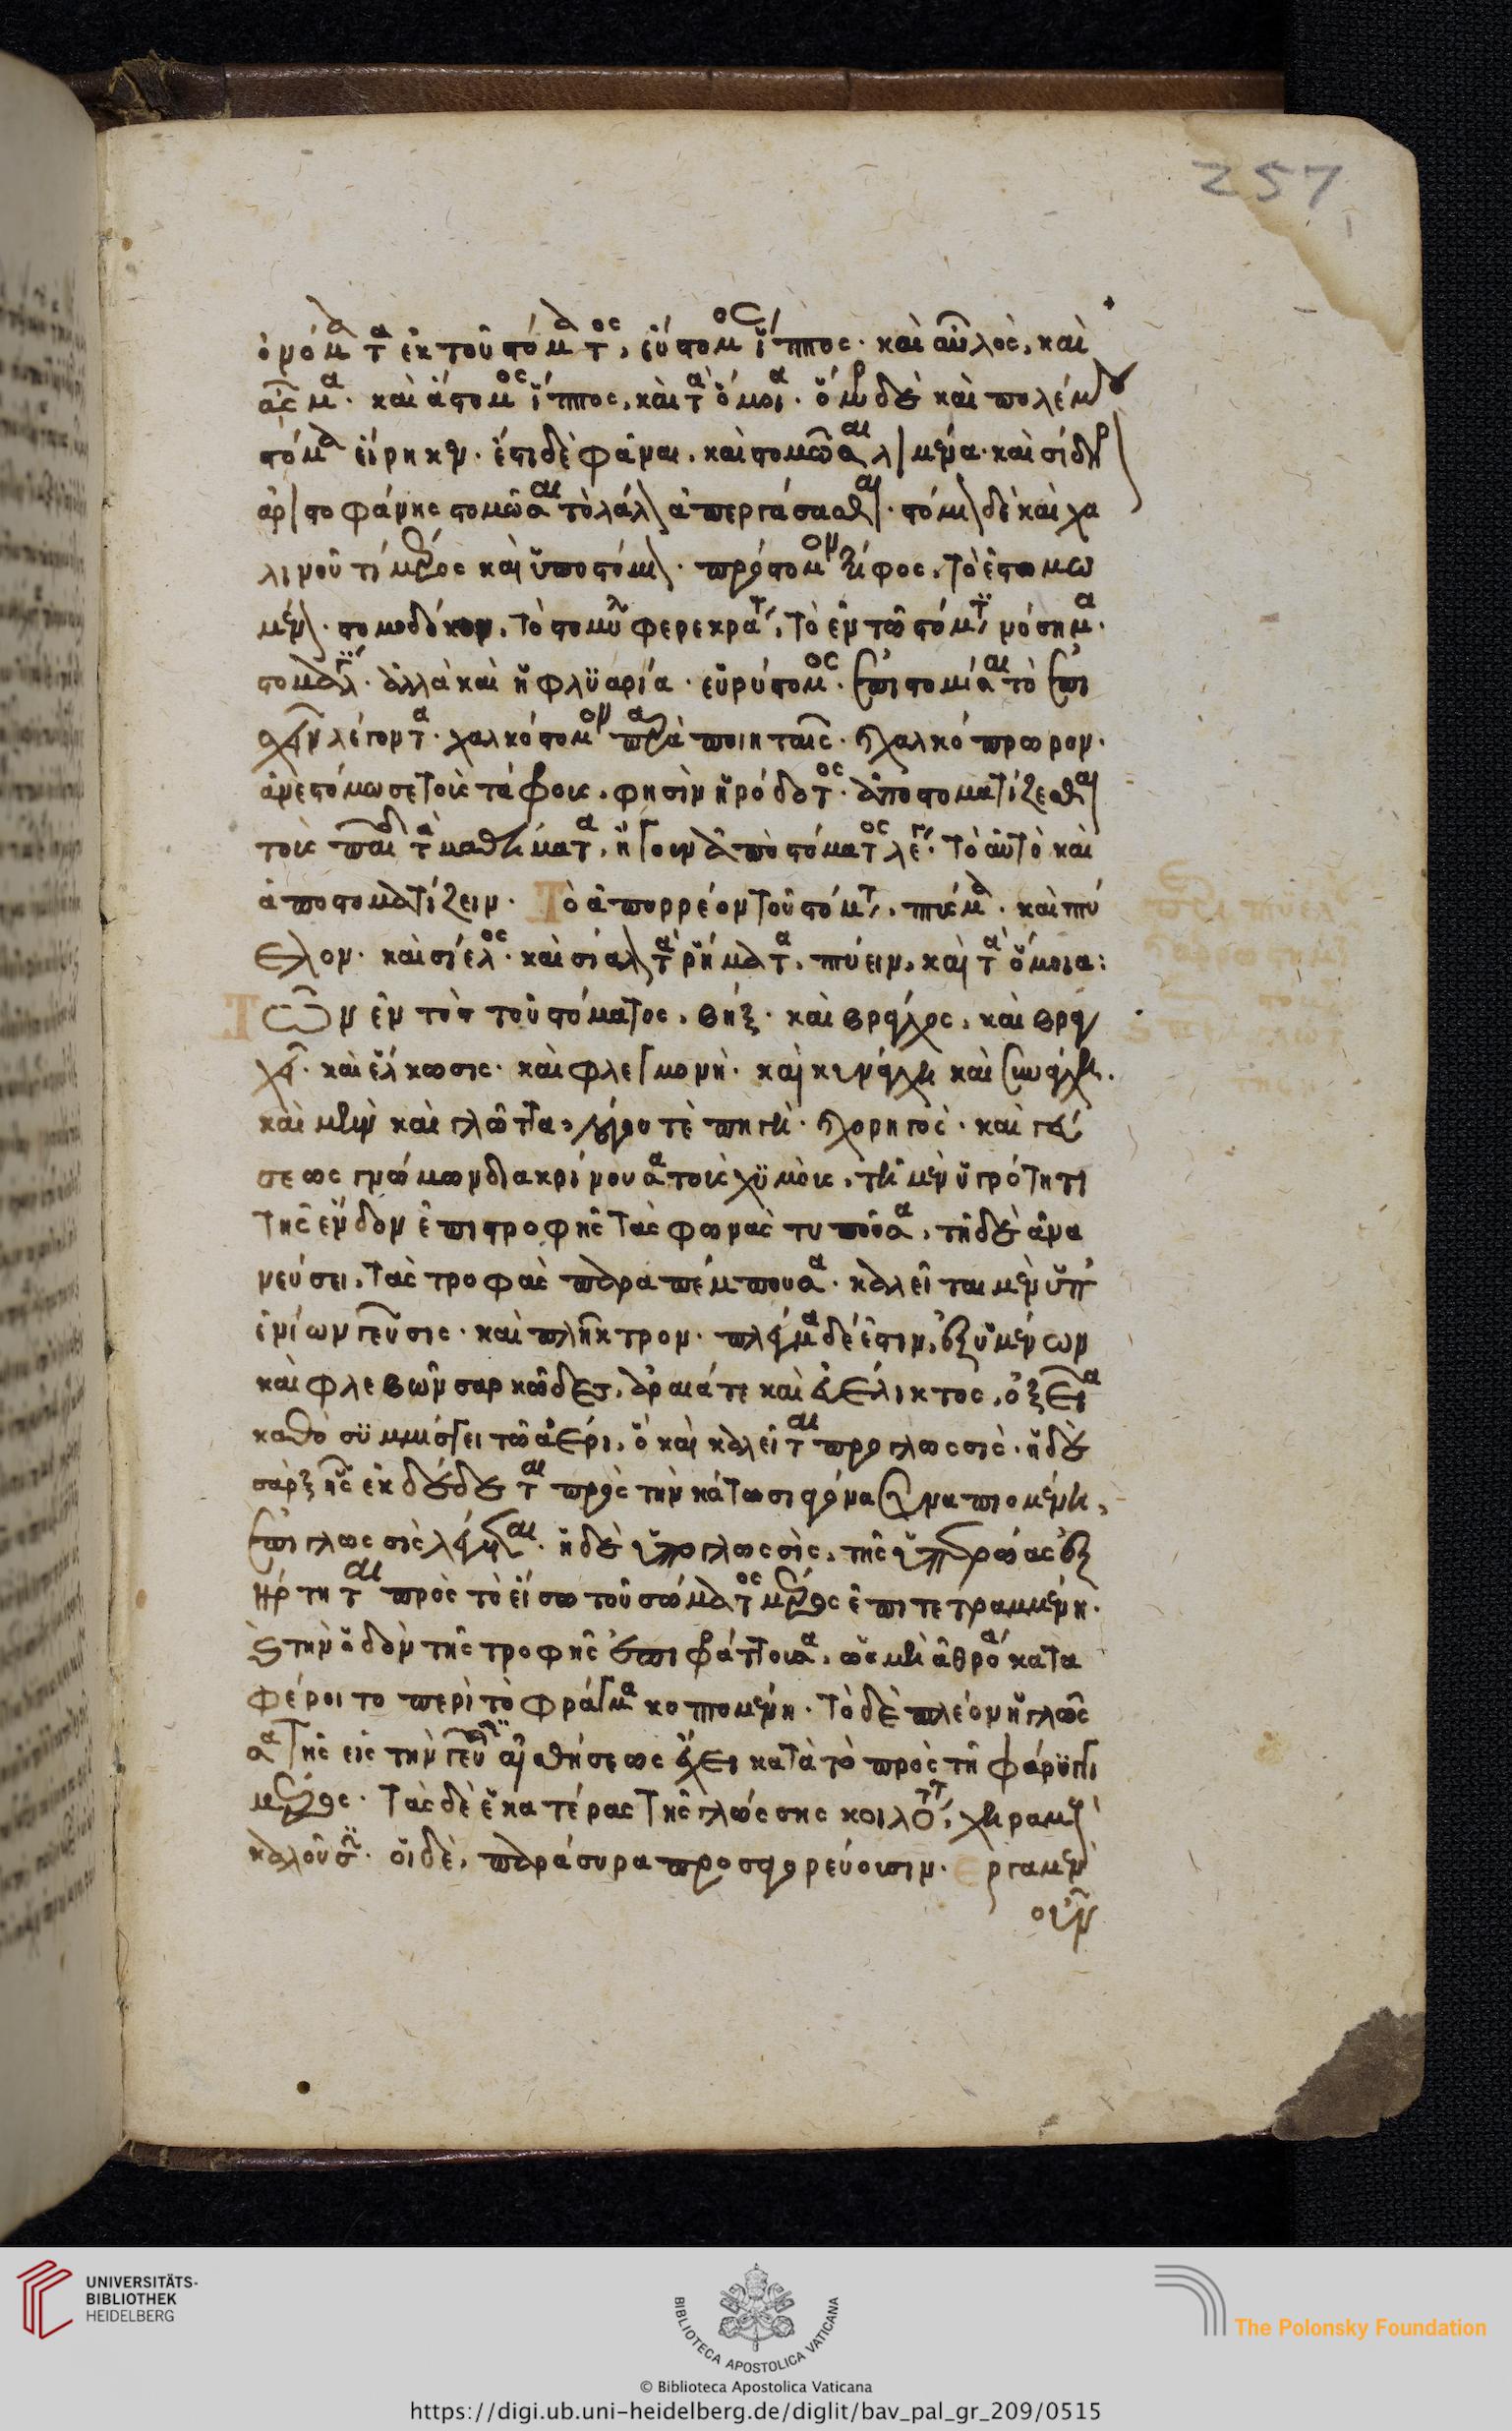 ὀνόματα ἐκ τοῦ στόματος, εὔστομος ἵππος· καὶ αὐλὸς, καὶ
ᾆσμα· καὶ ἄστομος ἵππος, καὶ τὰ ὅμοια· ὅμηρος δὲ καὶ πολέμου
στόμα εἴρηκεν· ἔστι δὲ φάναι, καὶ στομῶσαι λιμένα· καὶ σίδηρον
ἀριστοφάνης στομῶσαι τὸ λάλον ἀπεργάσασθαι· στόμιον δὲ καὶ χα
λινοῦ τὶ μέρος καὶ ὑποστόμιον· πρόστομον ξίφος, τὸ ἐστομω
μένον· στομοδόκον, τὸ στομύλον φερεκράτης, τὸ ἐν τῶ στόματι νόσημα·
στομαλγία· ἀλλὰ καὶ ἡ φλυαρία· εὐρύστομος· ἐπιστομίσαι τὸ ἐπι
σχεῖν λέγοντα· χαλκόστομον παρὰ ποιηταῖς· ἢ χαλκόπρωρον·
ἀνεστόμωσε τοῖς τάφροις, φησὶν ἡρόδοτος· ἀποστοματίζεσθαι
τοῖς παισὶ τὰ μαθήματα, ἤγουν ἀπὸ στόματος λέγειν· τὸ αὐτὸ καὶ
ἀποστοματίζειν· Τὸ ἀπορρέον τοῦ στόματος, πτύσμα· καὶ πτύ
ελον· καὶ σίελος· καὶ σίαλον τὰ ῥήματα, πτύειν, καὶ τὰ ὅμοια:
Τῶν ἐν τὸς τοῦ στόματος, βήξ· καὶ βράγχος, καὶ βράγ
χια· καὶ ἕλκωσις· καὶ φλεγμονὴ· καὶ κυνάγχη καὶ συνάγχη·
καὶ μὴν καὶ γλῶττα, λόγου τὲ πηγὴ· ἢ χορηγὸς· καὶ γεύ
σεως γνώμων διακρίνουσα τοὺς χυμοὺς, τῆ μὲν ὑγρότητι
τῆς ἔνδον ἐπιστροφῆς τὰς φωνὰς τυποῦσα, τῆ δὲ ἀνα
νεύσει, τὰς τροφὰς παραπέμπουσα· καλεῖται μὲν ὑπ'
ἐνίων γεῦσις· καὶ πλῆκτρον· πλέγμα δέ ἐστιν, ἐξ ὑμένων
καὶ φλεβῶν σαρκῶδες, ἀραιά τε καὶ ἀέλικτος, ὀξεῖα
καθὸ συμμίσγει τῶ ἀέρι, ὃ καὶ καλεῖται προγλωσσὶς· ἡ δὲ
σὰρξ ἧς ἐκδέδεται πρὸς τὴν κάτω σιαγόνα
ἐπιγλωσσὶς λέγεται· ἡ δὲ ὑπογλωσσὶς, τῆς ὑπερώας ἐξ
ήρτηται πρὸς τὸ εἴσω τοῦ σώματος μέρος ἐπιτετραμμένη·
τὴν ὁδὸν τῆς τροφῆς ἐπιφράττουσα, ὡς μὴ ἀθρόα κατα
φέροιτο περὶ τὸ φράγμα κοπτομένη· τὸ δὲ πλέον ἡ γλῶσ
σα τῆς εἰς τὴν γεῦσιν αἰσθήσεως ἔχει κατὰ τὸ πρὸς τῆ φάρυγγι
μέρος· τὰς δὲ ἑκατέρας τῆς γλώσσης κοιλότητας, χηραμοὺς
καλοῦσιν· οἱ δὲ, παράσυρα προσαγορεύουσιν· ἔργα μὲν
οὖν
257
UNIVERSITÄTS-
BIBLIOTHEK
HEIDELBERG
BIBLIOTECA APOSTOLICA VATICANA
© Biblioteca Apostolica Vaticana
The Polonsky Foundation
https://digi.ub.uni-heidelberg.de/diglit/bav_pal_gr_209/0515